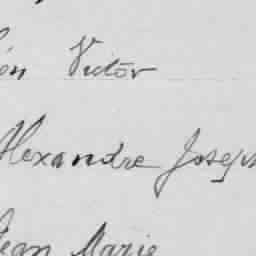 éon Victor
Alexandre Joseph
Jean Marie